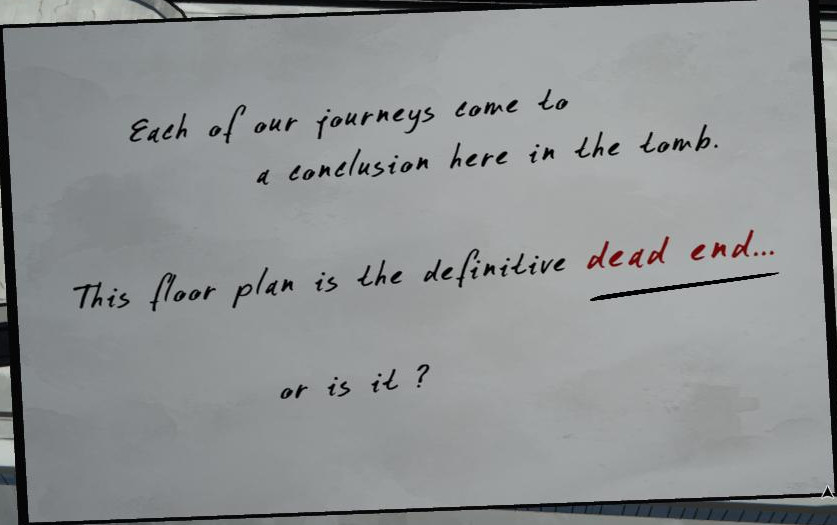 Each of our journeys come to
a conclusion here in the tomb.
This floor plan is the definitive dead end...
or is it?